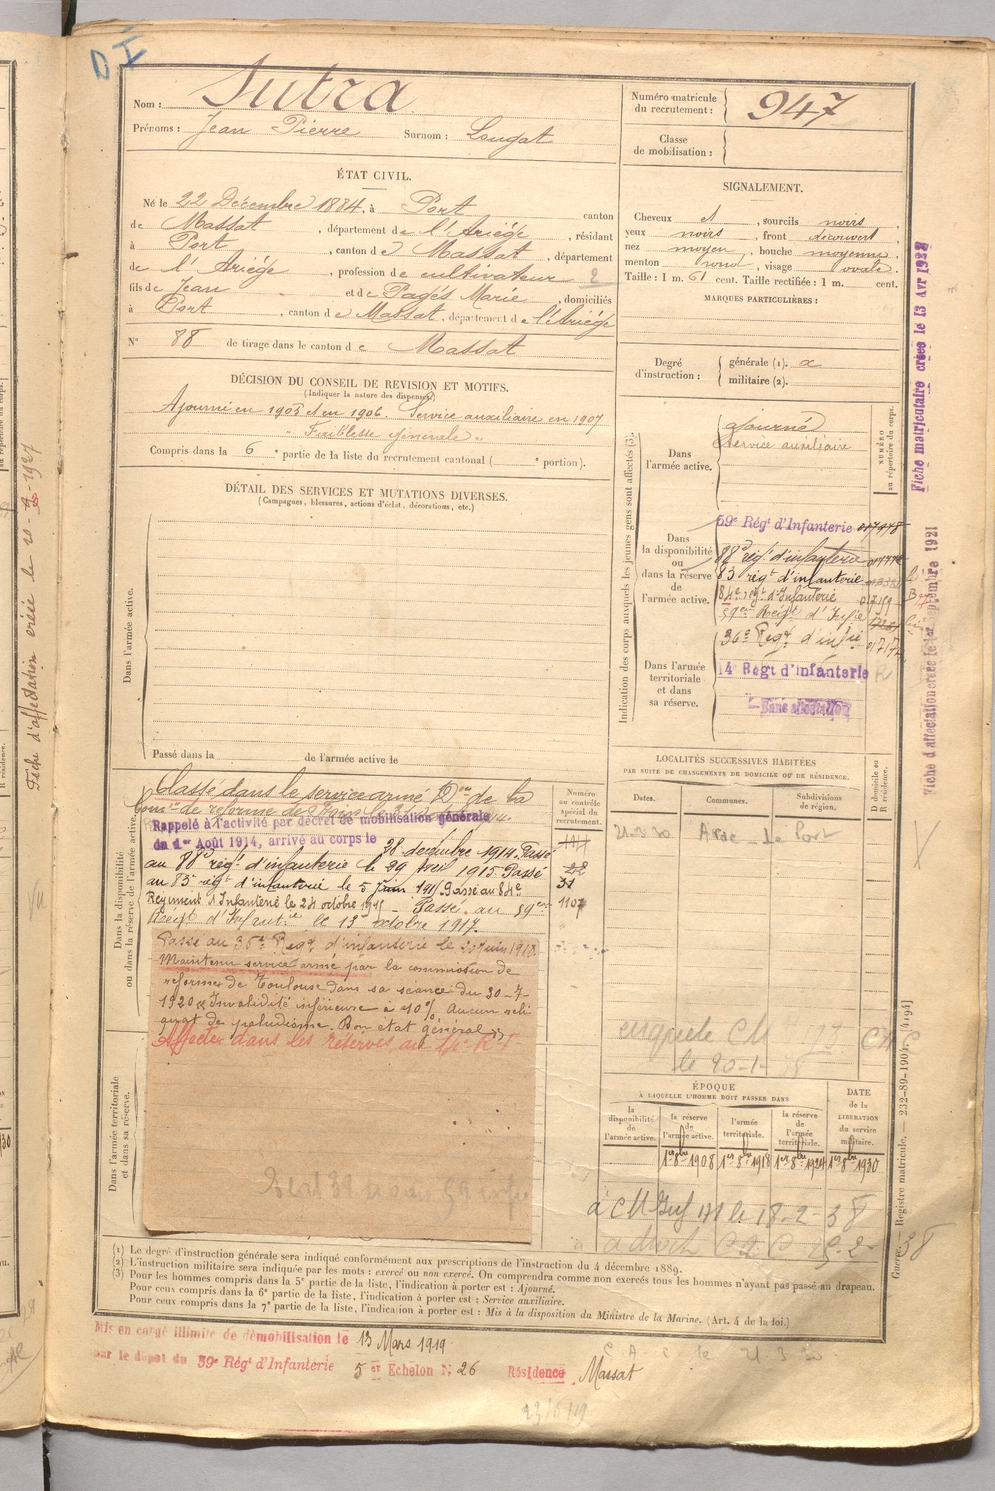 D I
Nom : Sutra
Prénoms : Jean Pierre Surnom : Lougat
ÉTAT CIVIL.
Né le 22 Décembre 1884, à Port canton
de Massat, département de l'Ariège, résidant
à Port, canton de Massat, département
de l'Ariège, profession de cultivateur 2
fils de Jean et de Pagés Marie, domiciliés
à Port, canton de Massat, département de l'Ariège
N° 88 de tirage dans le canton de Massat
DÉCISION DU CONSEIL DE REVISION ET MOTIFS.
(Indiquer la nature des dispenses)
Ajourné en 1905 et en 1906. Service auxiliaire en 1907
" Faiblesse générale "
Compris dans la 6e partie de la liste du recrutement cantonal ( e portion).
DÉTAIL DES SERVICES ET MUTATIONS DIVERSES.
(Campagnes, blessures, actions d'éclat, décorations, etc.)
Dans l'armée active.
Passé dans la de l'armée active le
Numéro matricule
du recrutement : 947
Classe
de mobilisation :
SIGNALEMENT.
Cheveux et, sourcils noirs,
yeux noirs, front découvert
nez moyen, bouche moyenne,
menton rond, visage ovale.
Taille : 1 m. 61 cent. Taille rectifiée : 1 m. cent.
MARQUES PARTICULIÈRES :
Degré
d'instruction :
générale (1).
militaire (2).
Indication des corps auxquels les jeunes gens sont affectés (3).
NUMÉRO
au répertoire du corps.
Dans
l'armée active.
ajourné
Service auxiliaire
Dans
la disponibilité
ou
dans la réserve
de
l'armée active.
59e Régt d'Infanterie
88e régt d'infanterie
83 régt d'infanterie
84e régt d'Infanterie
59e Régt d'Infie
36e Régt d'infie
Dans l'armée
territoriale
et dans
sa réserve.
14e Régt d'Infanterie
Sans affectation
Fiche matriculaire créée le 13 Avr 1922
Fiche d'affectation créée le 1er Septembre 1921
Fiche d'affectation créée le
Vu
Dans la disponibilité
ou dans la réserve de l'armée active.
Classé dans le service armé Don de la
Comon de réforme de
Rappelé à l'activité par décret de mobilisation générale
du 1er Août 1914, arrivé au corps le 28 décembre 1914. Passé
au 88e régt d'infanterie le 29 Avril 1915. Passé
au 83e régt d'infanterie le 5 Juin 1915. Passé au 84e
Régiment d'Infanterie le 24 octobre 1915 - Passé au 59eme
Régt d'Infanterie le 13 octobre 1917.
Passé au 36e Régt d'infanterie le 20 juin 1918.
Maintenu service armé par la commission de
réformes de Toulouse dans sa séance du 30-7-
1920 Invalidité inférieure à 10% Aucun reli
quat de paludisme. Bon état général
Affecté dans les réserves au 14e R.I
Dans l'armée territoriale
et dans sa réserve.
Numéro
au contrôle
spécial du
recrutement.
1107
LOCALITÉS SUCCESSIVES HABITÉES
PAR SUITE DE CHANGEMENTS DE DOMICILE OU DE RÉSIDENCE.
Dates. Communes. Subdivisions
de région. D domicile ou
R résidence.
21-3-30 Arac Le Port
enquête CM
le 20-1-
ÉPOQUE
À LAQUELLE L'HOMME DOIT PASSER DANS
la
disponibilité
de
l'armée active.
la réserve
de
l'armée active.
l'armée
territoriale.
la réserve
de
l'armée
territoriale.
DATE
de la
LIBÉRATION
du service
militaire.
1er 8bre 1908 1er 8bre 1918 1er 8bre 1924 1er 8bre 1930
le 18-2-38
Guerre. — Registre matricule. — 232-89-1904. [4194]
(1) Le degré d'instruction générale sera indiqué conformément aux prescriptions de l'instruction du 4 décembre 1889.
(2) L'instruction militaire sera indiquée par les mots : exercé ou non exercé. On comprendra comme non exercés tous les hommes n'ayant pas passé au drapeau.
(3) Pour les hommes compris dans la 5e partie de la liste, l'indication à porter est : Ajourné.
Pour ceux compris dans la 6e partie de la liste, l'indication à porter est : Service auxiliaire.
Pour ceux compris dans la 7e partie de la liste, l'indication à porter est : Mis à la disposition du Ministre de la Marine. (Art. 4 de la loi.)
Mis en congé illimité de démobilisation le 13 Mars 1919
par le dépôt du 59e Régt d'Infanterie 5 er Echelon N° 26 Résidence Massat